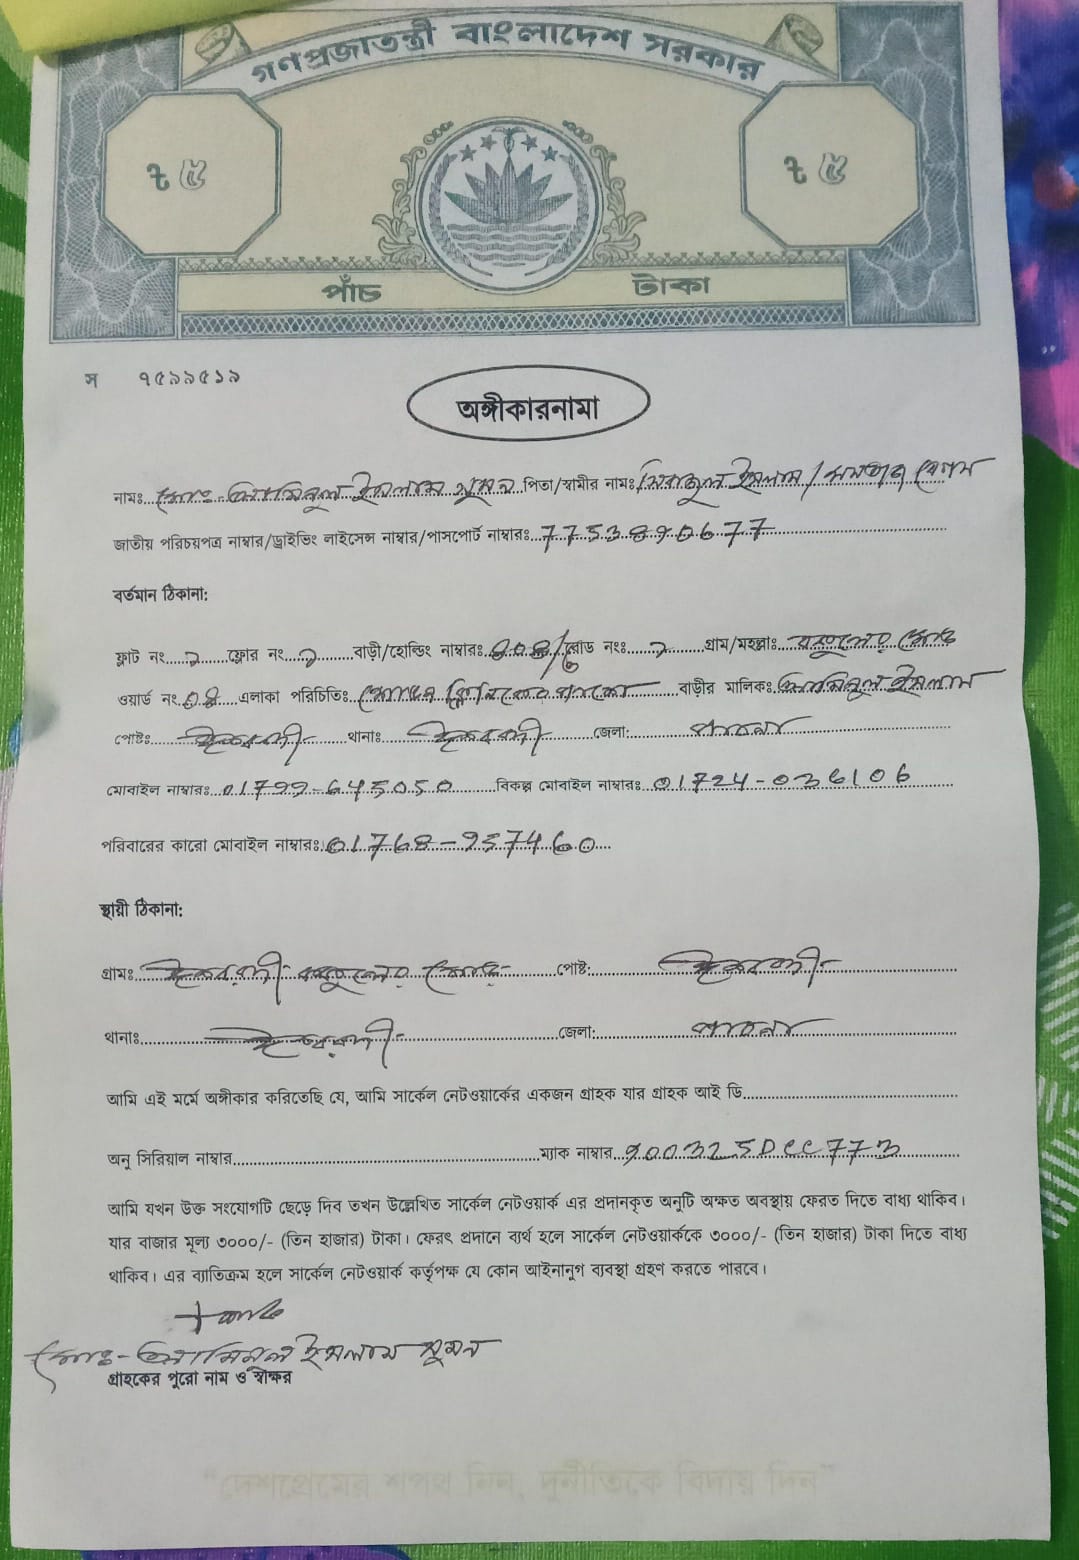 গণপ্রজাতন্ত্রী বাংলাদেশ সরকার
৳ ৫ ৳ ৫
পাঁচ টাকা
স ৭৫৯৯৫১৯
অঙ্গীকারনামা
নামঃ মোঃ- আমিনুল ইসলাম সুমন পিতা/স্বামীর নামঃ সিরাজুল ইসলাম / বেগম
জাতীয় পরিচয়পত্র নাম্বার/ড্রাইভিং লাইসেন্স নাম্বার/পাসপোর্ট নাম্বারঃ 7753890677
বর্তমান ঠিকানা:
ফ্লাট নং ২ ফ্লোর নং ২ বাড়ী/হোল্ডিং নাম্বারঃ রোড নংঃ ২ গ্রাম/মহল্লাঃ রোড
ওয়ার্ড নং ০৪ এলাকা পরিচিতিঃ বাড়ীর মালিকঃ আমিনুল ইসলাম
পোষ্টঃ ঈশ্বরদী থানাঃ ঈশ্বরদী জেলা: পাবনা
মোবাইল নাম্বারঃ 01799-645050 বিকল্প মোবাইল নাম্বারঃ 01724-036106
পরিবারের কারো মোবাইল নাম্বারঃ 01768-957460
স্থায়ী ঠিকানা:
গ্রামঃ ঈশ্বরদী রোড পোষ্ট: ঈশ্বরদী
থানাঃ ঈশ্বরদী জেলা: পাবনা
আমি এই মর্মে অঙ্গীকার করিতেছি যে, আমি সার্কেল নেটওয়ার্কের একজন গ্রাহক যার গ্রাহক আই ডি
অনু সিরিয়াল নাম্বার ম্যাক নাম্বার 900325DCC773
আমি যখন উক্ত সংযোগটি ছেড়ে দিব তখন উল্লেখিত সার্কেল নেটওয়ার্ক এর প্রদানকৃত অনুটি অক্ষত অবস্থায় ফেরত দিতে বাধ্য থাকিব।
যার বাজার মূল্য ৩০০০/- (তিন হাজার) টাকা। ফেরৎ প্রদানে ব্যর্থ হলে সার্কেল নেটওয়ার্ককে ৩০০০/- (তিন হাজার) টাকা দিতে বাধ্য
থাকিব। এর ব্যতিক্রম হলে সার্কেল নেটওয়ার্ক কর্তৃপক্ষ যে কোন আইনানুগ ব্যবস্থা গ্রহণ করতে পারবে।
মোঃ- আমিনুল ইসলাম সুমন
গ্রাহকের পুরো নাম ও স্বাক্ষর
"দেশপ্রেমের শপথ নিন, দুর্নীতিকে বিদায় দিন"